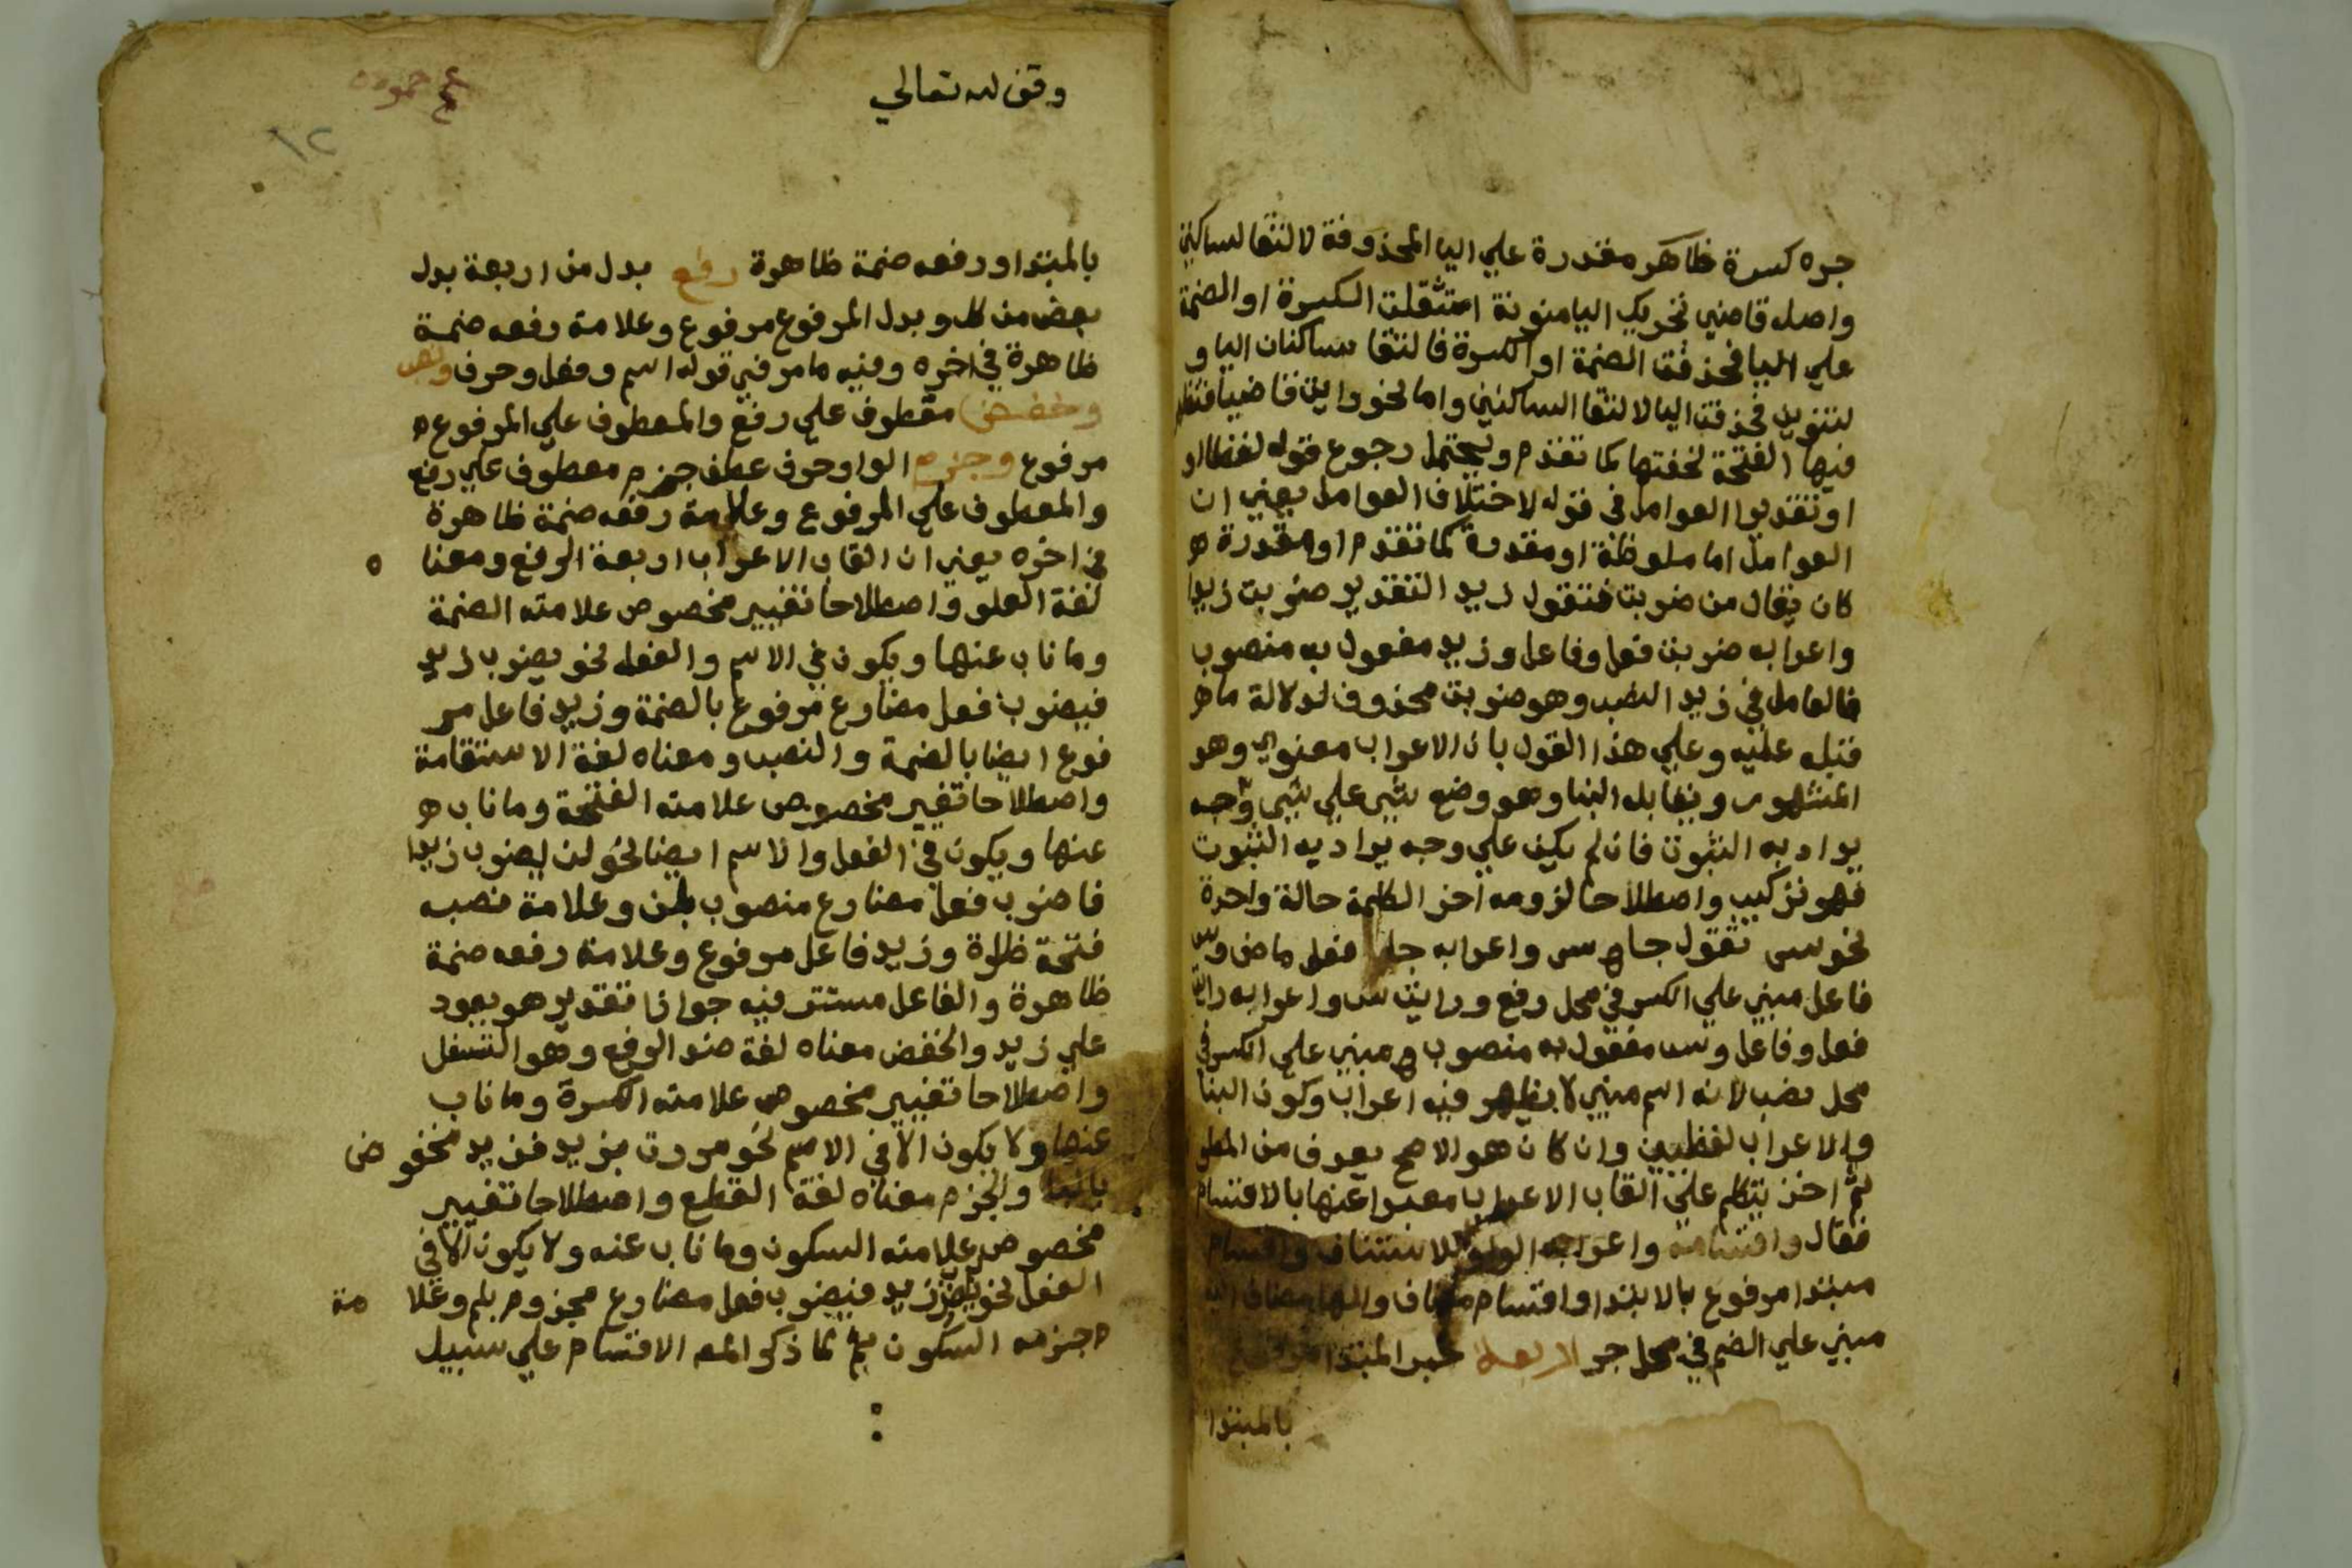 جره كسرة ظاهر مقدرة علي اليا المحذوفة لالتقا لساكنين
واصل قاضي تحريك اليا منونة استثقلت الكسرة او الضمة
علي اليا فحذفت الضمة او الكسرة فالتقا ساكنان اليا و
لتنوين فحذفت اليا لالتقا الساكنين واما نحو رايت قاضيا فتظهر
فيها الفتحة لخفتها كما تقدم ويحتمل رجوع قوله لفظا او
او تقديرا العوامل في قوله لاختلاف العوامل يعني ان
العوامل اما ملوظة او مقدرة كما تقدم او مقدرة ه
كان يقال من ضربت فتقول زيدا التقدير ضربت زيدا
واعرابه ضربت فعل وفاعل وزيد مفعول به منصوب
فالعامل في زيد النصب وهو ضربت محذوف لدلالة ما ه
قبله عليه وعلي هذا القول بان الاعراب معنوي وهو
المشهور ويقابله البنا وهو وضع شي علي شي وجه
يراد به الثبوت فان لم يكن علي وجه يراد به الثبوت
فهو تركيب واصطلاحا لزومه اخر الكلمة حالة واحدة
نحو س تقول جا س واعرابه جا فعل ماض وس
فاعل مبني علي الكسر في محل رفع ورايت س واعرابه رايت
فعل وفاعل وس مفعول به منصوب مبني علي الكسر في
محل نصب لانه اسم مبني لا يظهر فيه اعراب وكون البنا
والاعراب لفظيين وان كان هو الاصح يعرف من المطو
ثم اخذ يتكلم علي القاب الاعراب معبرا عنها بالاقسام
فقال واقسامه واعرابه الواو للاستئناف واقسام
مبتدا مرفوع بالابتدا واقسام مضاف والها مضاف اليه
مبني علي الضم في محل جر اربعة خبر المبتدا مرفوع
بالمبتدا
وقف لله تعالي
١٢
بالمبتدا ورفعه ضمة ظاهرة رفع بدل من اربعة بدل
بعض من كل وبدل المرفوع مرفوع وعلامة رفعه ضمة
ظاهرة في اخره وفيه ما مر في قوله اسم وفعل وحرف ونصب
وخفض مقطوف علي رفع والمعطوف علي المرفوع ه
مرفوع وجزم الواو حرف عطف جزم معطوف علي رفع
والمعطوف علي المرفوع وعلامة رفعه ضمة ظاهرة
في اخره يعني ان القاب الاعراب اربعة الرفع ومعنا ه
لغة العلو واصطلاحا تغيير مخصوص علامته الضمة
وما ناب عنها ويكون في الاسم والفعل نحو يضرب زيد
فيضرب فعل مضارع مرفوع بالضمة وزيد فاعل مر
فوع ايضا بالضمة والنصب ومعناه لغة الاستقامة
واصطلاحا تغيير مخصوص علامته الفتحة وما ناب ه
عنها ويكون في الفعل والاسم ايضا نحو لن يضرب زيدا
فاضرب فعل مضارع منصوب بلن وعلامة نصبه
فتحة ظاهرة وزيد فاعل مرفوع وعلامة رفعه ضمة
ظاهرة والفاعل مستتر فيه جوازا تقديره هو يعود
علي زيد والخفض معناه لغة ضد الرفع وهو التسفل
واصطلاحا تغيير مخصوص علامته الكسرة وما ناب
عنها ولا يكون الا في الاسم نحو مررت بزيد فزيد مخفوض
بالبا والجزم معناه لغة القطع واصطلاحا تغيير
مخصوص علامته السكون وما ناب عنه ولا يكون الا في
الفعل نحو يضرب زيد فيضرب فعل مضارع مجزوم بلم وعلا مة
جزمه السكون ثم لما ذكر المص الاقسام علي سبيل